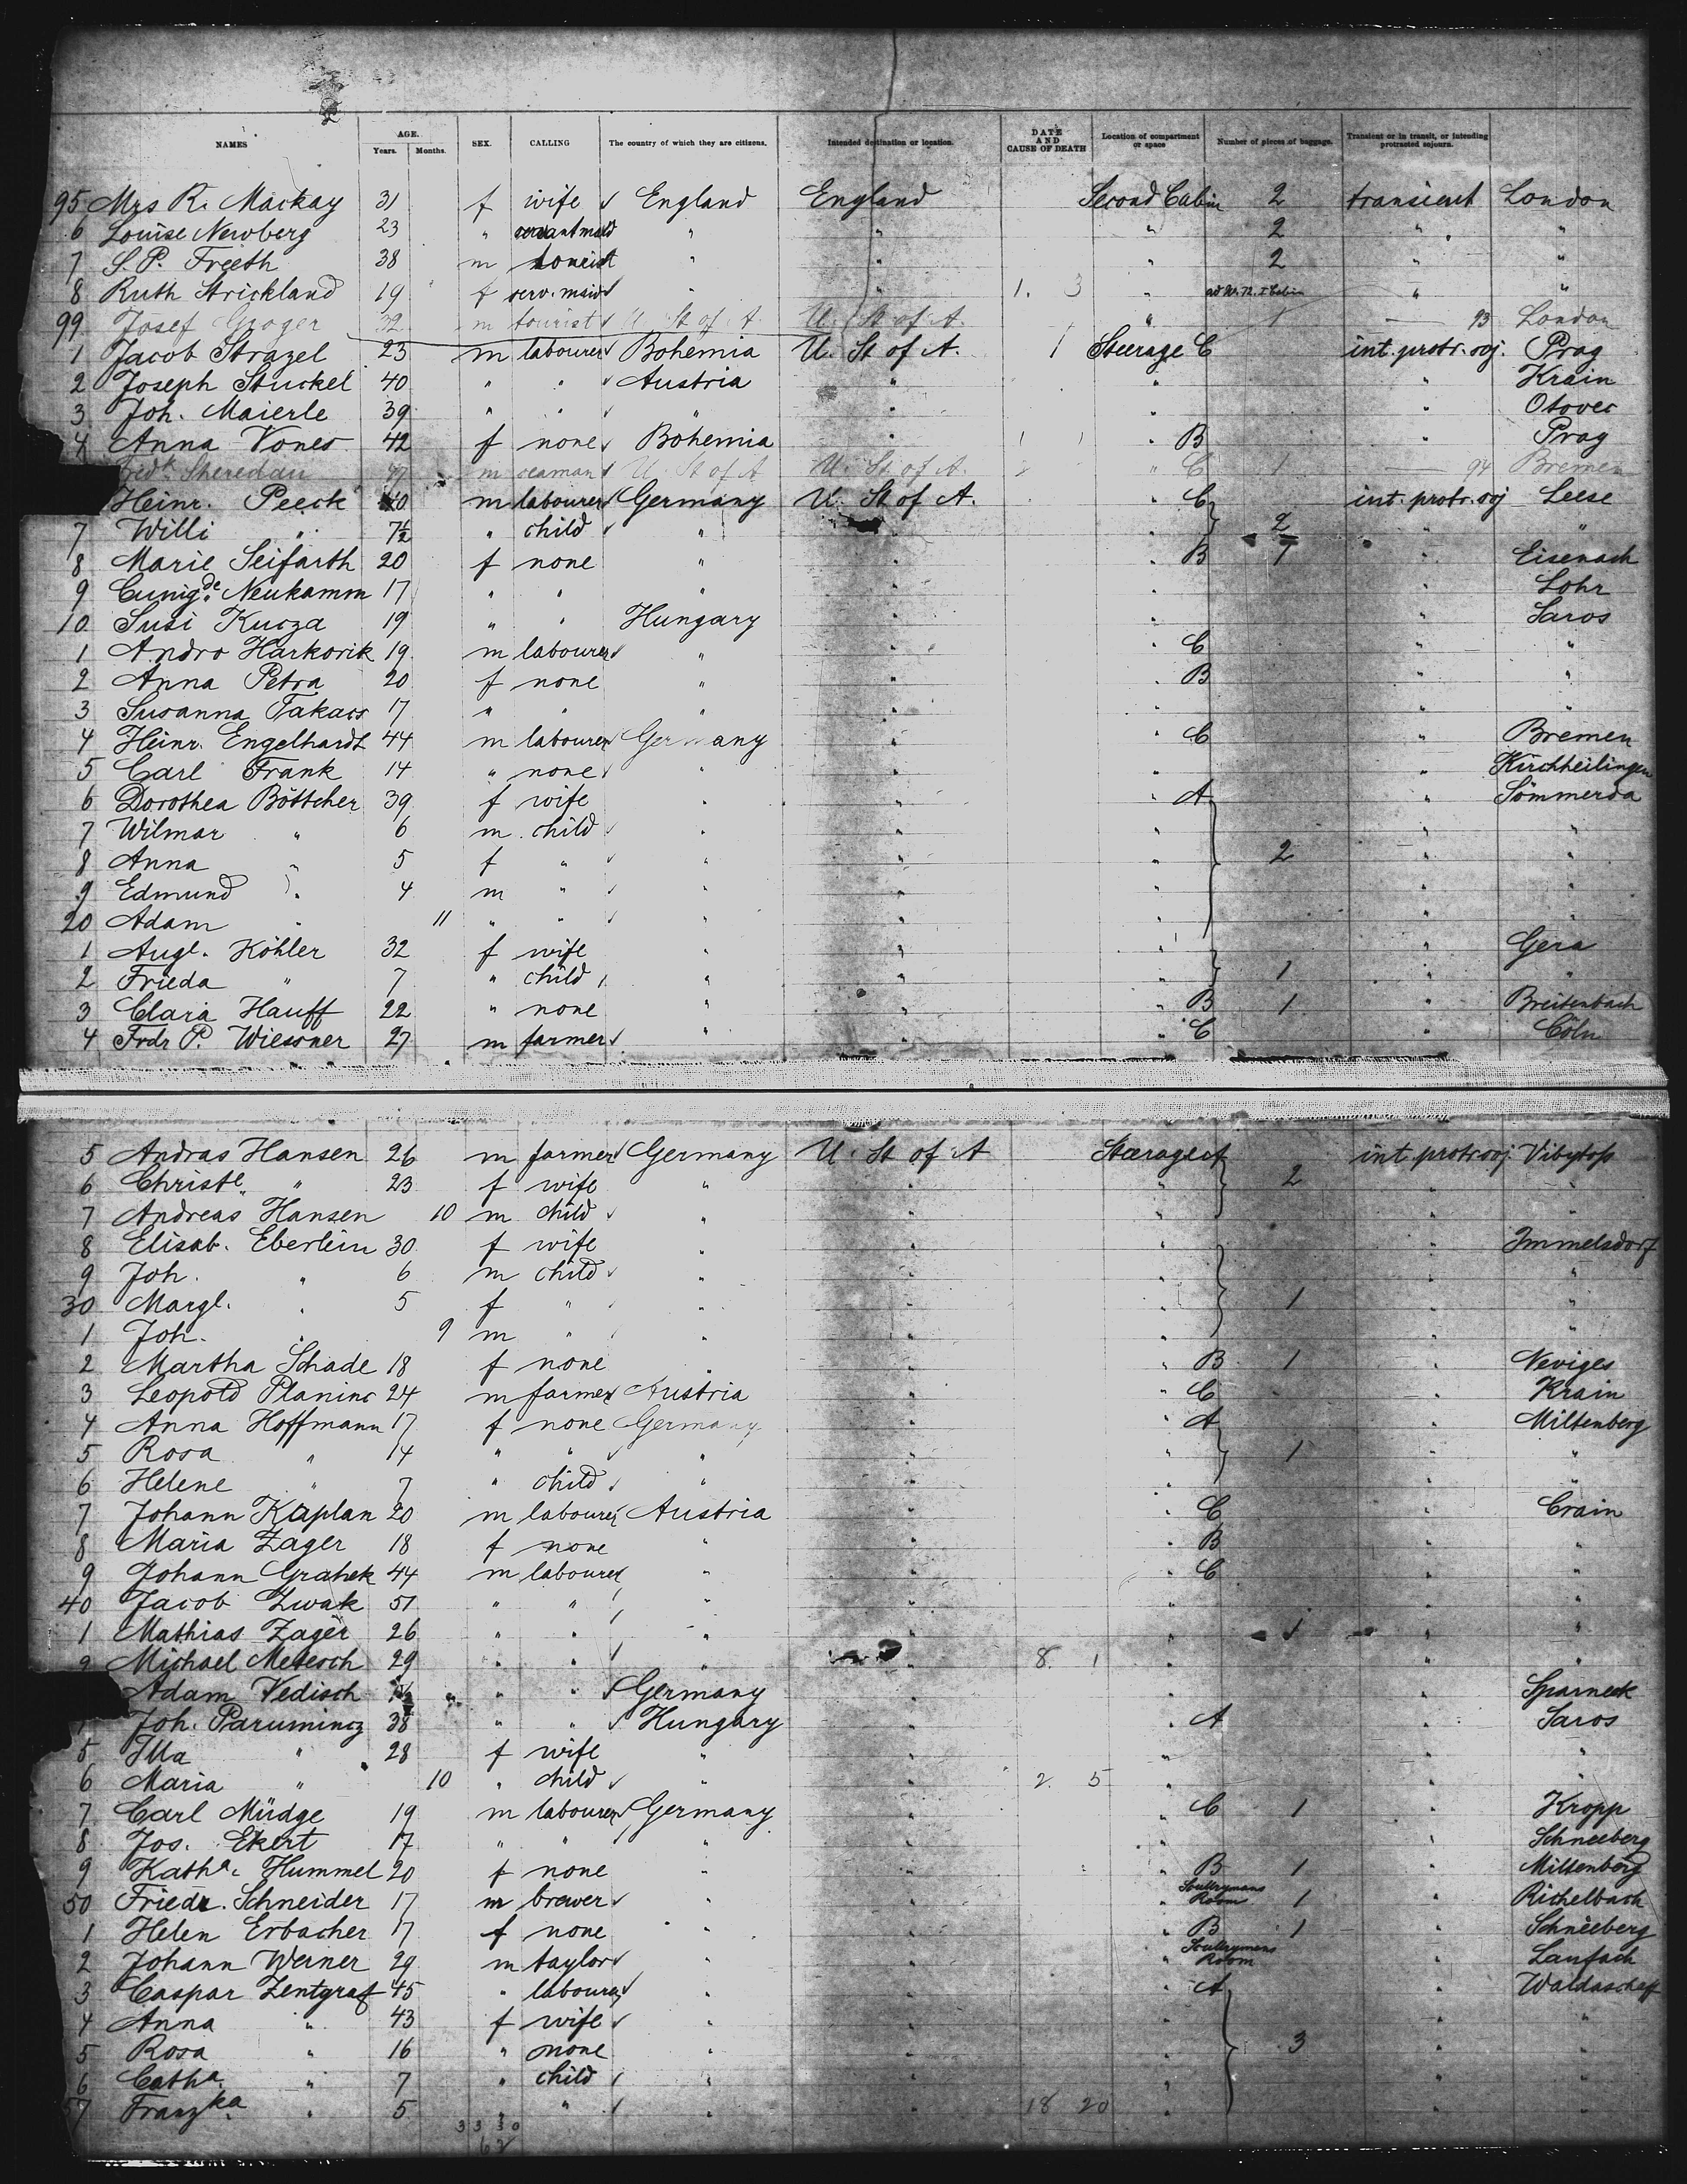 NAMES AGE. Years. Months. SEX. CALLING The country of which they are citizens. Intended destination or location. DATE AND CAUSE OF DEATH Location of compartment or space Number of pieces of baggage. Transient or in transit, or intending protracted sojourn.
95 Mrs R. Mackay 31 f wife England England Second Cabin 2 transient London
6 Louise Newberg 23 " " " " 2 " "
7 S. P. Freeth 38 m tourist " " " 2 " "
8 Ruth Strickland 19 f serv. maid " 1. 3 " " "
99 Josef Groger 32 m tourist U. St of A. U. St of A. " 1 — 93 London
1 Jacob Strazel 23 m labourer Bohemia U. St of A. 1 Steerage C int. protr. soj. Prag
2 Joseph Stuckel 40 " " Austria " " " Krain
3 Joh. Maierle 39 " " " " " " Otovec
4 Anna Vones 42 f none Bohemia " 1 1 " B " Prag
Sheredan 47 m seaman U. St of A U. St. of A. " C 1 — 94 Bremen
Heinr. Peeck 40 m labourer Germany U. St of A. " C int. protr. soj Leese
7 Willi " 7½ " child " " 2 "
8 Marie Seifarth 20 f none " " " B 1 " Eisenach
9 Cunigde. Neukamm 17 " " " " " " Lohr
10 Susi Kucza 19 " " Hungary " " " Saros
1 Andro Harkorik 19 m labourer " " " C " "
2 Anna Petra 20 f none " " " B " "
3 Susanna Takacs 17 " " " " " " "
4 Heinr. Engelhardt 44 m labourer Germany " " C " Bremen
5 Carl Frank 14 " none " " " " Kirchheilingen
6 Dorothea Böttcher 39 f wife " " " A " Sömmerda
7 Wilmar " 6 m child " " " " "
8 Anna " 5 f " " " " 2 " "
9 Edmund " 4 m " " " " " "
20 Adam " 11 " " " " " " "
1 Augl. Köhler 32 f wife " " " " Gera
2 Frieda " 7 " child " " " 1 " "
3 Clara Hauff 22 " none " " " B 1 " Breitenbach
4 Frdr P. Wiessner 27 m farmer " " " C " Cöln
5 Andras Hansen 26 m farmer Germany U. St of A Steerage A int. protr. soj. Vibytoft
6 Christe. " 23 f wife " " " 2 " "
7 Andreas Hansen 10 m child " " " " "
8 Elisab. Eberlein 30 f wife " " " " Immelsdorf
9 Joh. " 6 m child " " " " "
30 Margl. " 5 f " " " " 1 " "
1 Joh. " 9 m " " " " " "
2 Martha Schade 18 f none " " " B 1 " Neviges
3 Leopold Planinc 24 m farmer Austria " " C " Krain
4 Anna Hoffmann 17 f none Germany " " A " Miltenberg
5 Rosa " 14 " " " " " 1 " "
6 Helene " 7 " child " " " " "
7 Johann Kaplan 20 m labourer Austria " " C " Crain
8 Maria Zager 18 f none " " " B " "
9 Johann Grahek 44 m labourer " " " C " "
40 Jacob Zwak 51 " " " " " " "
1 Mathias Zager 26 " " " " " 1 " "
2 Michael Metesch 29 " " " " 8. 1 " " "
Adam Vedisch " " Germany " " " Sparneck
Joh. Parumincz 38 " " Hungary " " A " Saros
5 Illa " 28 f wife " " " " "
6 Maria " 10 " child " " 2. 5 " " "
7 Carl Müdge 19 m labourer Germany " " C 1 " Kropp
8 Jos. Ekert 17 " " " " " " Schneeberg
9 Katha. Hummel 20 f none " " " B 1 " Miltenberg
50 Friedr. Schneider 17 m brewer " " " Room 1 " Richelbach
1 Helen Erbacher 17 f none " " " B 1 " Schneeberg
2 Johann Werner 29 m taylor " " " Room " Laufach
3 Caspar Zentgraf 45 " labourer " " " A " Waldaschaff
4 Anna " 43 f wife " " " " "
5 Rosa " 16 " none " " " 3 " "
6 Catha. " 7 " child " " " " "
57 Franzka. " 5 " " " " 18 20 " " "
33 30
62